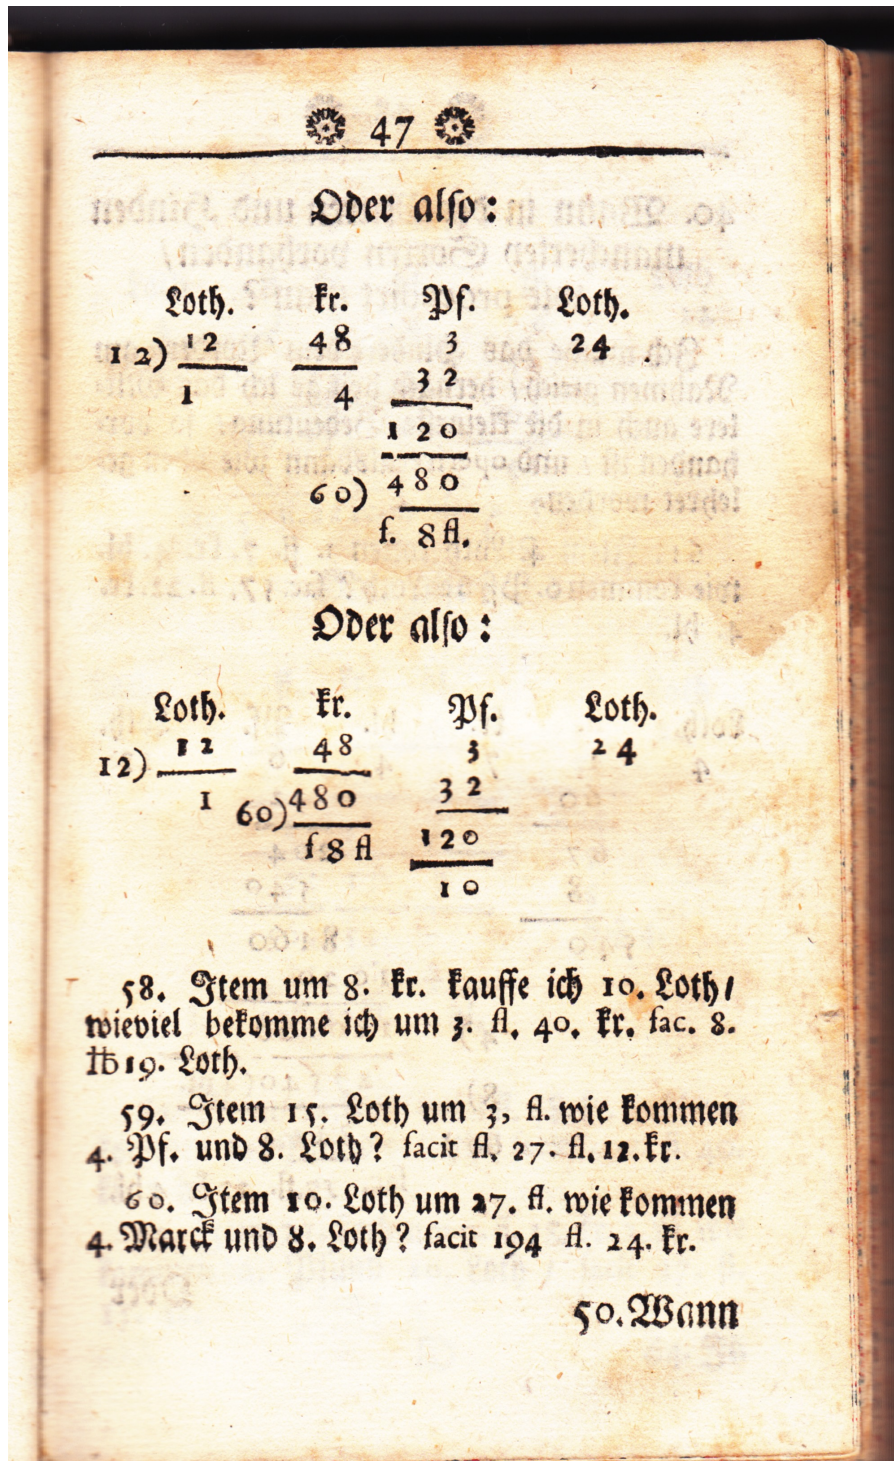 47
Oder also:
Loth. kr. Pf. Loth.
12) 12 48 3 24
1 4 32
120
60) 480
f. 8 fl.
Oder also:
Loth. kr. Pf. Loth.
12) 12 48 3 24
1 60) 480 32
f 8 fl 120
10
58. Item um 8. kr. kauffe ich 10. Loth/
wieviel bekomme ich um 3. fl. 40. kr. fac. 8.
℔ 19. Loth.
59. Item 15. Loth um 3, fl. wie kommen
4. Pf. und 8. Loth? facit fl. 27. fl. 12. kr.
60. Item 10. Loth um 27. fl. wie kommen
4. Marck und 8. Loth? facit 194 fl. 24. kr.
50. Wann